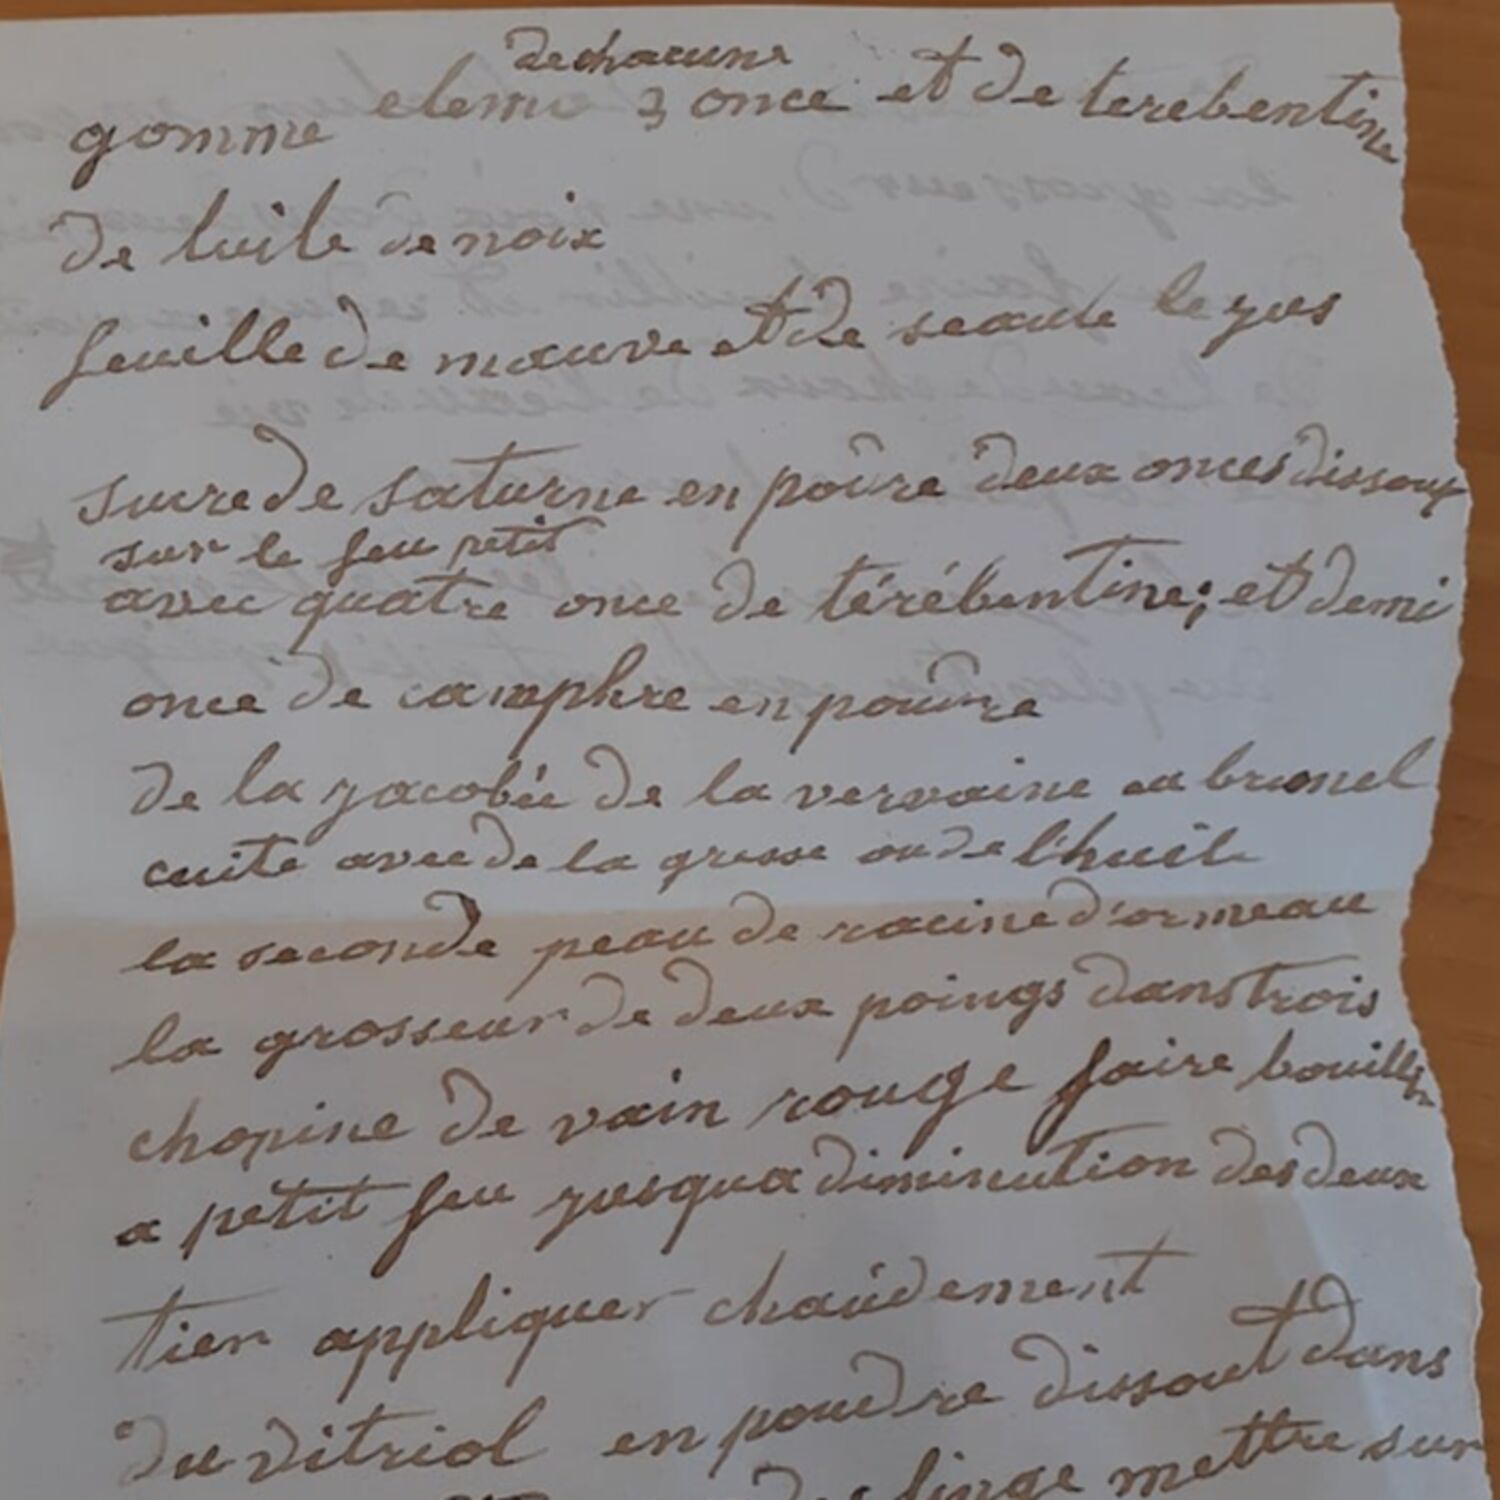 de chacune
gomme elemi 3 once et de terebentine
de luile de noix
feuille de mauve et de seaule le jus
sucre de saturne en poudre deux onces dissous
sur le feu petit
avec quatre once de térébentine; et demi
once de camphre en poudre
de la jacobée de la vervaine ou brunel
cuite avec de la gresse ou de l'huile
la seconde peau de racine d'ormeau
la grosseur de deux poings dans trois
chopine de vain rouge faire bouillir
a petit feu jusqua diminution des deux
tier appliquer chaudement
du vitriol en poudre dissout dans
linge mettre sur